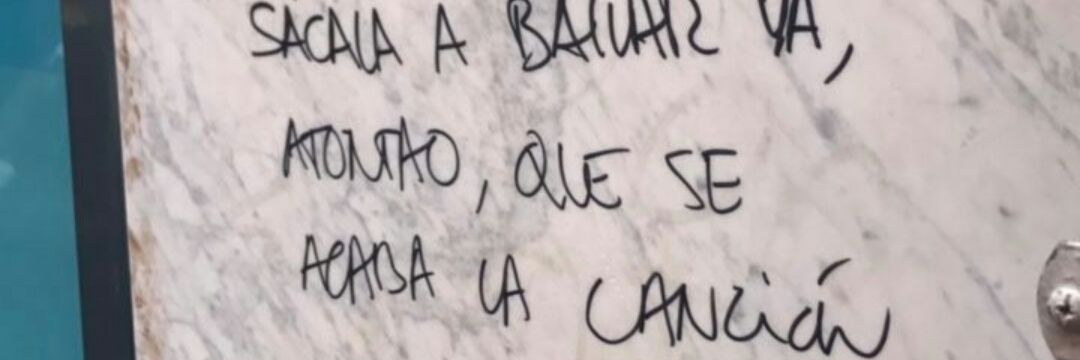 SACALA A BAILAR YA,
ATONTAO, QUE SE
ACABA LA CANCIÓN